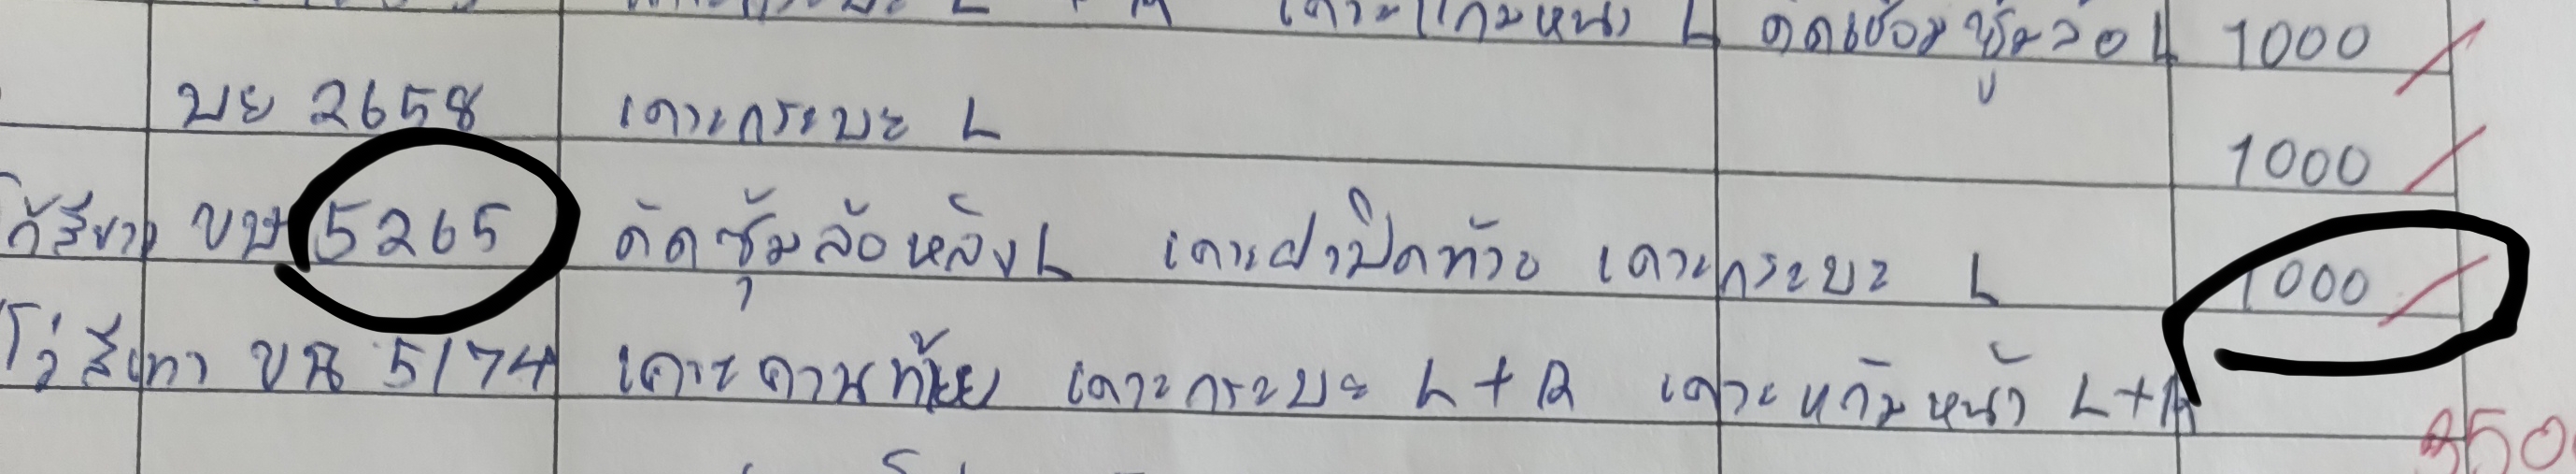 เคาะแก้มหน้า L ดัดเชื่อมซุ้มล้อ L 1000
บย 2658 เคาะกระบะ L 1000
สีขาว ขษ 5265 ดัดซุ้มล้อหลัง L เคาะฝาปิดท้าย เคาะกระบะ L 1000
สีเทา ขนิ 5174 เคาะคานท้าย เคาะกระบะ L+R เคาะแก้มหน้า L+R